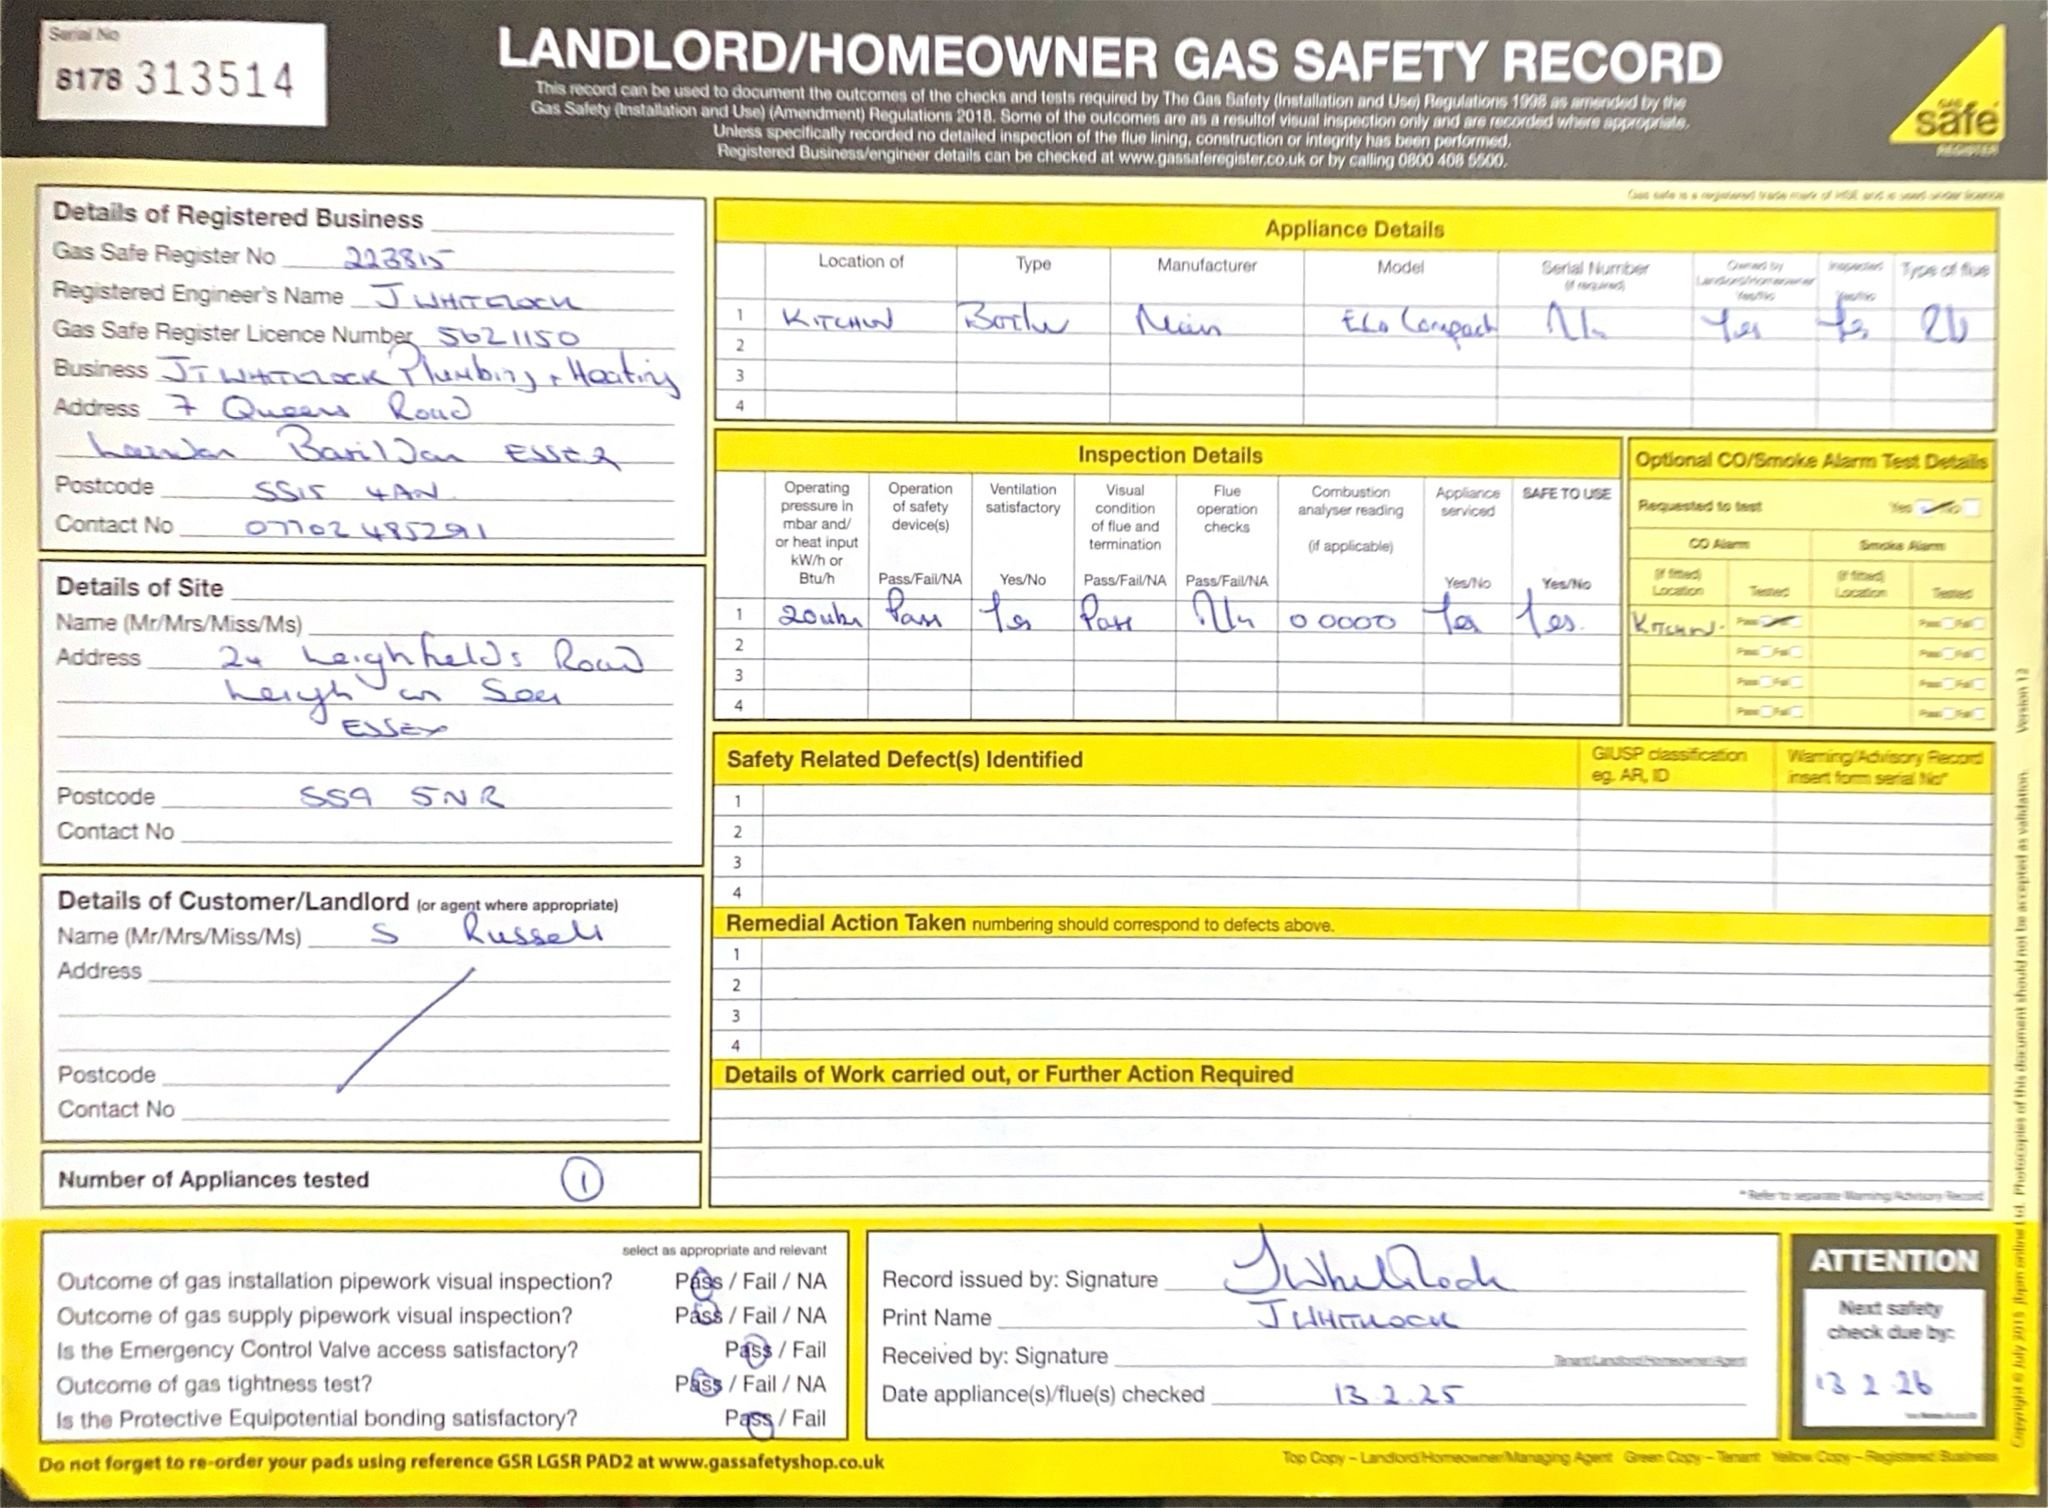 Serial No
8178 313514
LANDLORD/HOMEOWNER GAS SAFETY RECORD
This record can be used to document the outcomes of the checks and tests required by The Gas Safety (Installation and Use) Regulations 1998 as amended by the
Gas Safety (Installation and Use) (Amendment) Regulations 2018. Some of the outcomes are as a resultof visual inspection only and are recorded where appropriate.
Unless specifically recorded no detailed inspection of the flue lining, construction or integrity has been performed.
Registered Business/engineer details can be checked at www.gassaferegister.co.uk or by calling 0800 408 5500.
GAS safe REGISTER
Gas safe is a registered trade mark of HSE and is used under licence
Details of Registered Business
Gas Safe Register No 223815
Registered Engineer's Name J WHITLOCK
Gas Safe Register Licence Number 5621150
Business JT WHITLOCK Plumbing + Heating
Address 7 Queens Road
Laindon Basildon ESSEX
Postcode SS15 4AN
Contact No 07702485291
Details of Site
Name (Mr/Mrs/Miss/Ms)
Address 24 Leighfields Road
Leigh on Sea
ESSEX
Postcode SS9 5NR
Contact No
Details of Customer/Landlord (or agent where appropriate)
Name (Mr/Mrs/Miss/Ms) S Russell
Address
Postcode
Contact No
Number of Appliances tested 1
Appliance Details
Location of Type Manufacturer Model Serial Number (if required) Owned by Landlord/homeowner Yes/No Inspected Yes/No Type of flue
1 KITCHEN Boiler Main Eco Compact N/A Yes Yes
2
3
4
Inspection Details
Operating pressure in mbar and/ or heat input kW/h or Btu/h Operation of safety device(s) Pass/Fail/NA Ventilation satisfactory Yes/No Visual condition of flue and termination Pass/Fail/NA Flue operation checks Pass/Fail/NA Combustion analyser reading (if applicable) Appliance serviced Yes/No SAFE TO USE Yes/No
1 20mbr Pass Yes Pass N/A 0.0000 Yes Yes.
2
3
4
Optional CO/Smoke Alarm Test Details
Requested to test Yes No
CO Alarm Smoke Alarm
(if fitted) Location Tested (if fitted) Location Tested
KITCHEN. Pass Pass Fail
Pass Fail Pass Fail
Pass Fail Pass Fail
Pass Fail Pass Fail
Safety Related Defect(s) Identified GIUSP classification eg. AR, ID Warning/Advisory Record insert form serial No*
1
2
3
4
Remedial Action Taken numbering should correspond to defects above.
1
2
3
4
Details of Work carried out, or Further Action Required
* Refer to separate Warning/Advisory Record
select as appropriate and relevant
Outcome of gas installation pipework visual inspection? Pass / Fail / NA
Outcome of gas supply pipework visual inspection? Pass / Fail / NA
Is the Emergency Control Valve access satisfactory? Pass / Fail
Outcome of gas tightness test? Pass / Fail / NA
Is the Protective Equipotential bonding satisfactory? Pass / Fail
Record issued by: Signature J Whitlock
Print Name J WHITLOCK
Received by: Signature Tenant/Landlord/Homeowner/Agent
Date appliance(s)/flue(s) checked 13.2.25
ATTENTION
Next safety
check due by:
13 2 26
Do not forget to re-order your pads using reference GSR LGSR PAD2 at www.gassafetyshop.co.uk
Top Copy – Landlord/Homeowner/Managing Agent Green Copy – Tenant Yellow Copy – Registered Business
Photocopies of this document should not be accepted as validation. Version 12